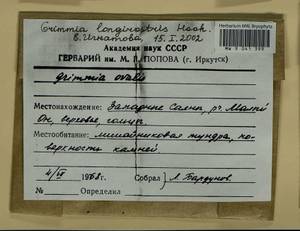 Grimmia longirostris Hook.
Е. Игнатова, 15.I.2002
Herbarium MW, Bryophyta
Академия наук СССР
ГЕРБАРИЙ им. М. Г. ПОПОВА (г. Иркутск)
Grimmia ovalis
Местонахождение: Западные Саяны, р. Малый
Он, верхнее
Местообитание: лишайниковая тундра, по-
верхность камней
4/VI 1968 г. Собрал Л. Бардунов
№ Определил